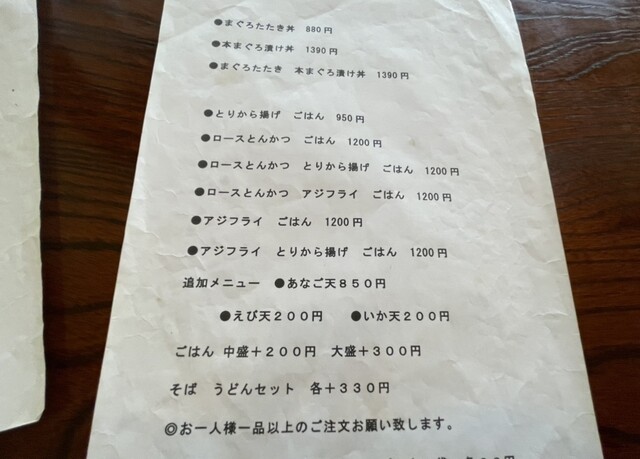 ●まぐろたたき丼 880円
●本まぐろ漬け丼 1390円
●まぐろたたき 本まぐろ漬け丼 1390円
●とりから揚げ ごはん 950円
●ロースとんかつ ごはん 1200円
●ロースとんかつ とりから揚げ ごはん 1200円
●ロースとんかつ アジフライ ごはん 1200円
●アジフライ ごはん 1200円
●アジフライ とりから揚げ ごはん 1200円
追加メニュー ●あなご天850円
●えび天200円 ●いか天200円
ごはん 中盛+200円 大盛+300円
そば うどんセット 各+330円
◎お一人様一品以上のご注文お願い致します。